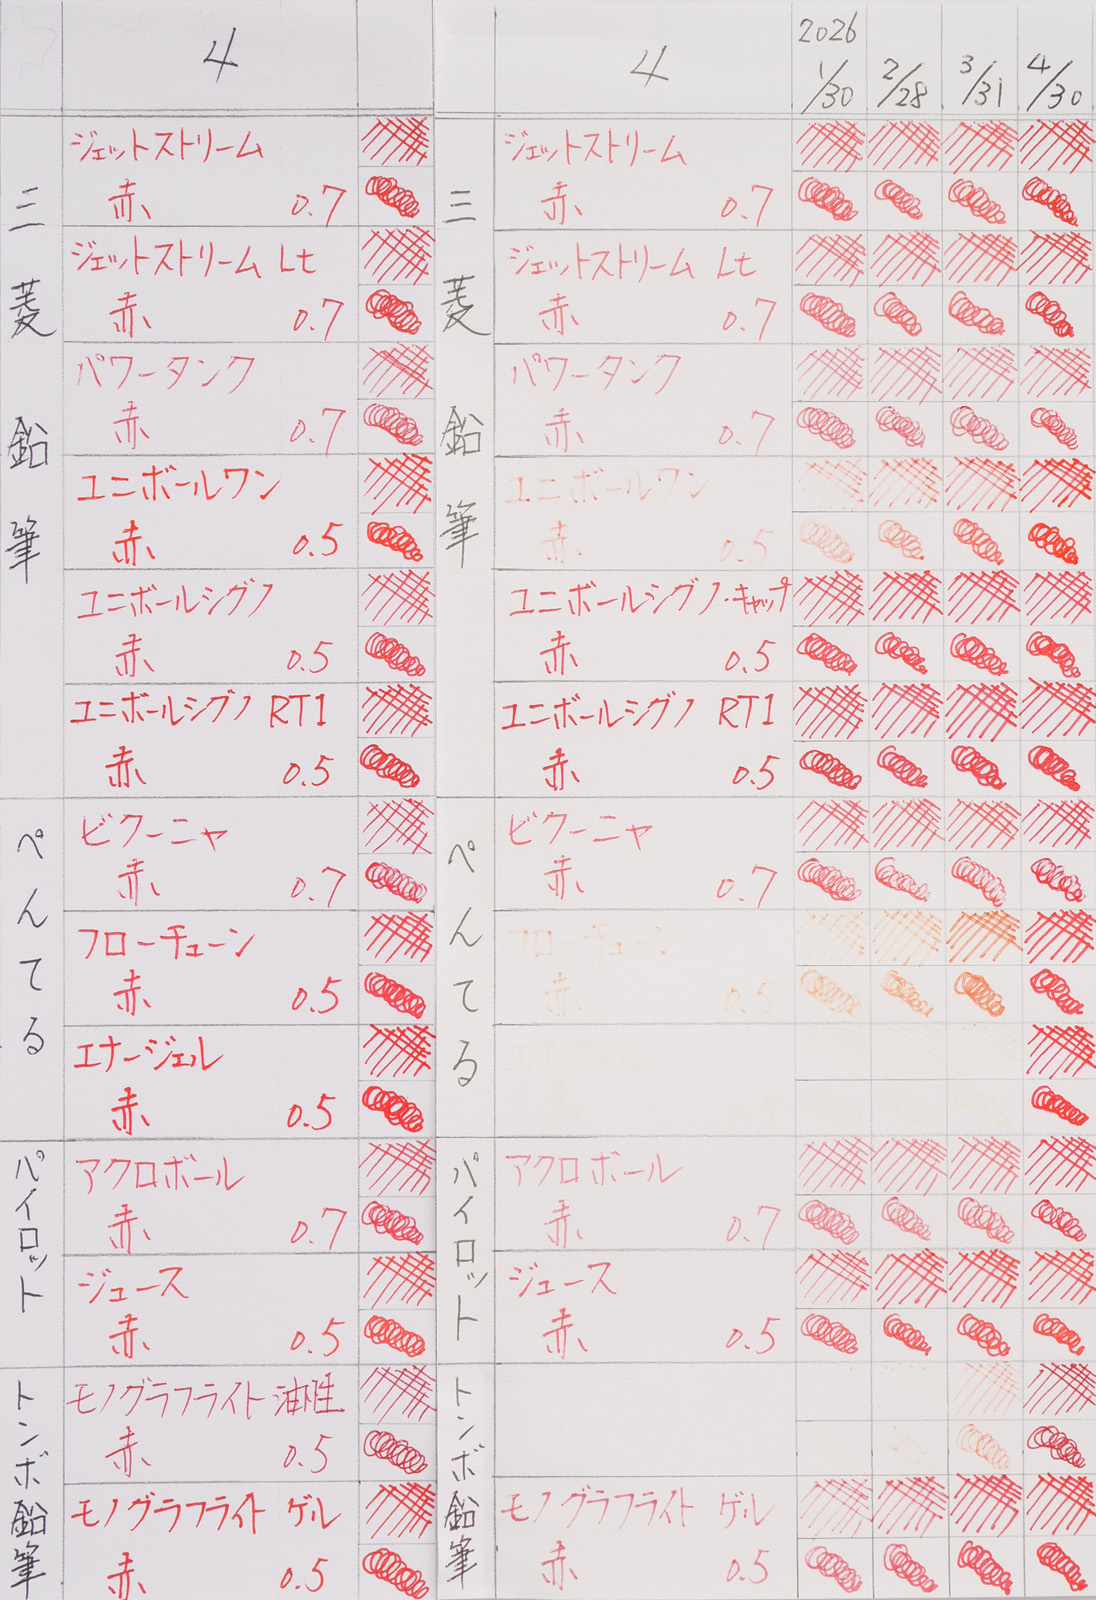 4
三菱鉛筆
ジェットストリーム
赤 0.7
ジェットストリーム Lt
赤 0.7
パワータンク
赤 0.7
ユニボールワン
赤 0.5
ユニボールシグノ
赤 0.5
ユニボールシグノ RT1
赤 0.5
ぺんてる
ビクーニャ
赤 0.7
フローチューン
赤 0.5
エナージェル
赤 0.5
パイロット
アクロボール
赤 0.7
ジュース
赤 0.5
トンボ鉛筆
モノグラフライト 油性
赤 0.5
モノグラフライト ゲル
赤 0.5
4
2026
1/30 2/28 3/31 4/30
三菱鉛筆
ジェットストリーム
赤 0.7
ジェットストリーム Lt
赤 0.7
パワータンク
赤 0.7
ユニボールワン
赤 0.5
ユニボールシグノ・キャップ
赤 0.5
ユニボールシグノ RT1
赤 0.5
ぺんてる
ビクーニャ
赤 0.7
フローチューン
赤 0.5
パイロット
アクロボール
赤 0.7
ジュース
赤 0.5
トンボ鉛筆
モノグラフライト ゲル
赤 0.5